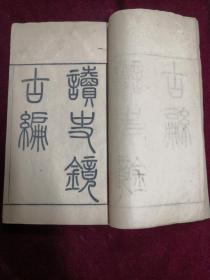 讀史鏡
古編